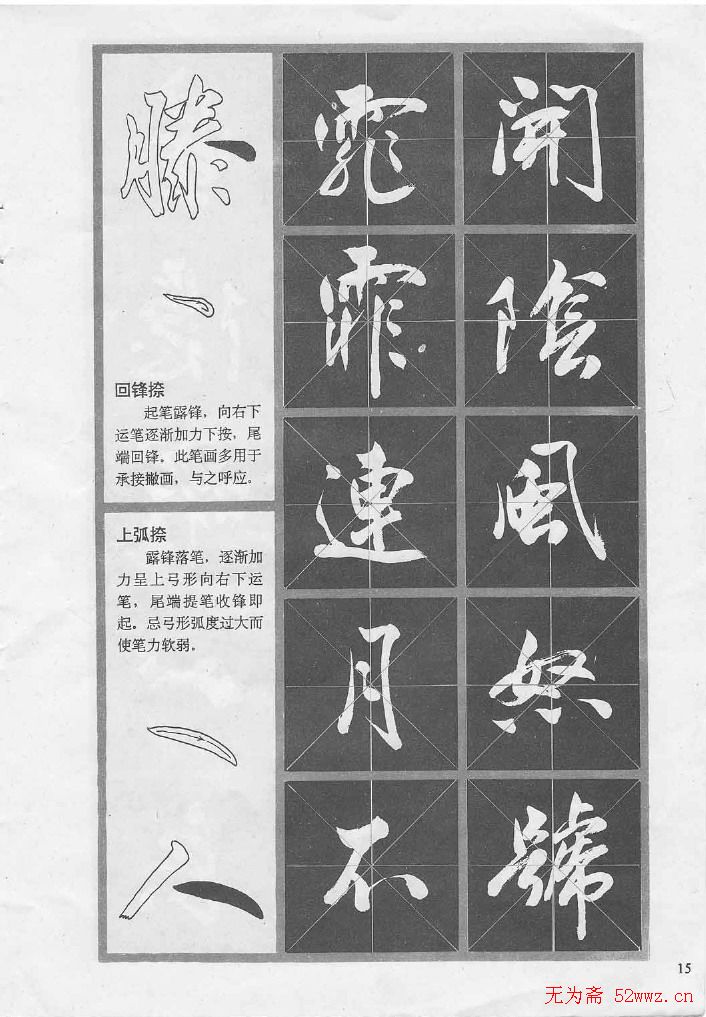 滕
回锋捺
起笔露锋，向右下
运笔逐渐加力下按，尾
端回锋。此笔画多用于
承接撇画，与之呼应。
上弧捺
露锋落笔，逐渐加
力呈上弓形向右下运
笔，尾端提笔收锋即
起。忌弓形弧度过大而
使笔力软弱。
人
霏霏連月不
開陰風怒號
15
无为斋 52wwz.cn